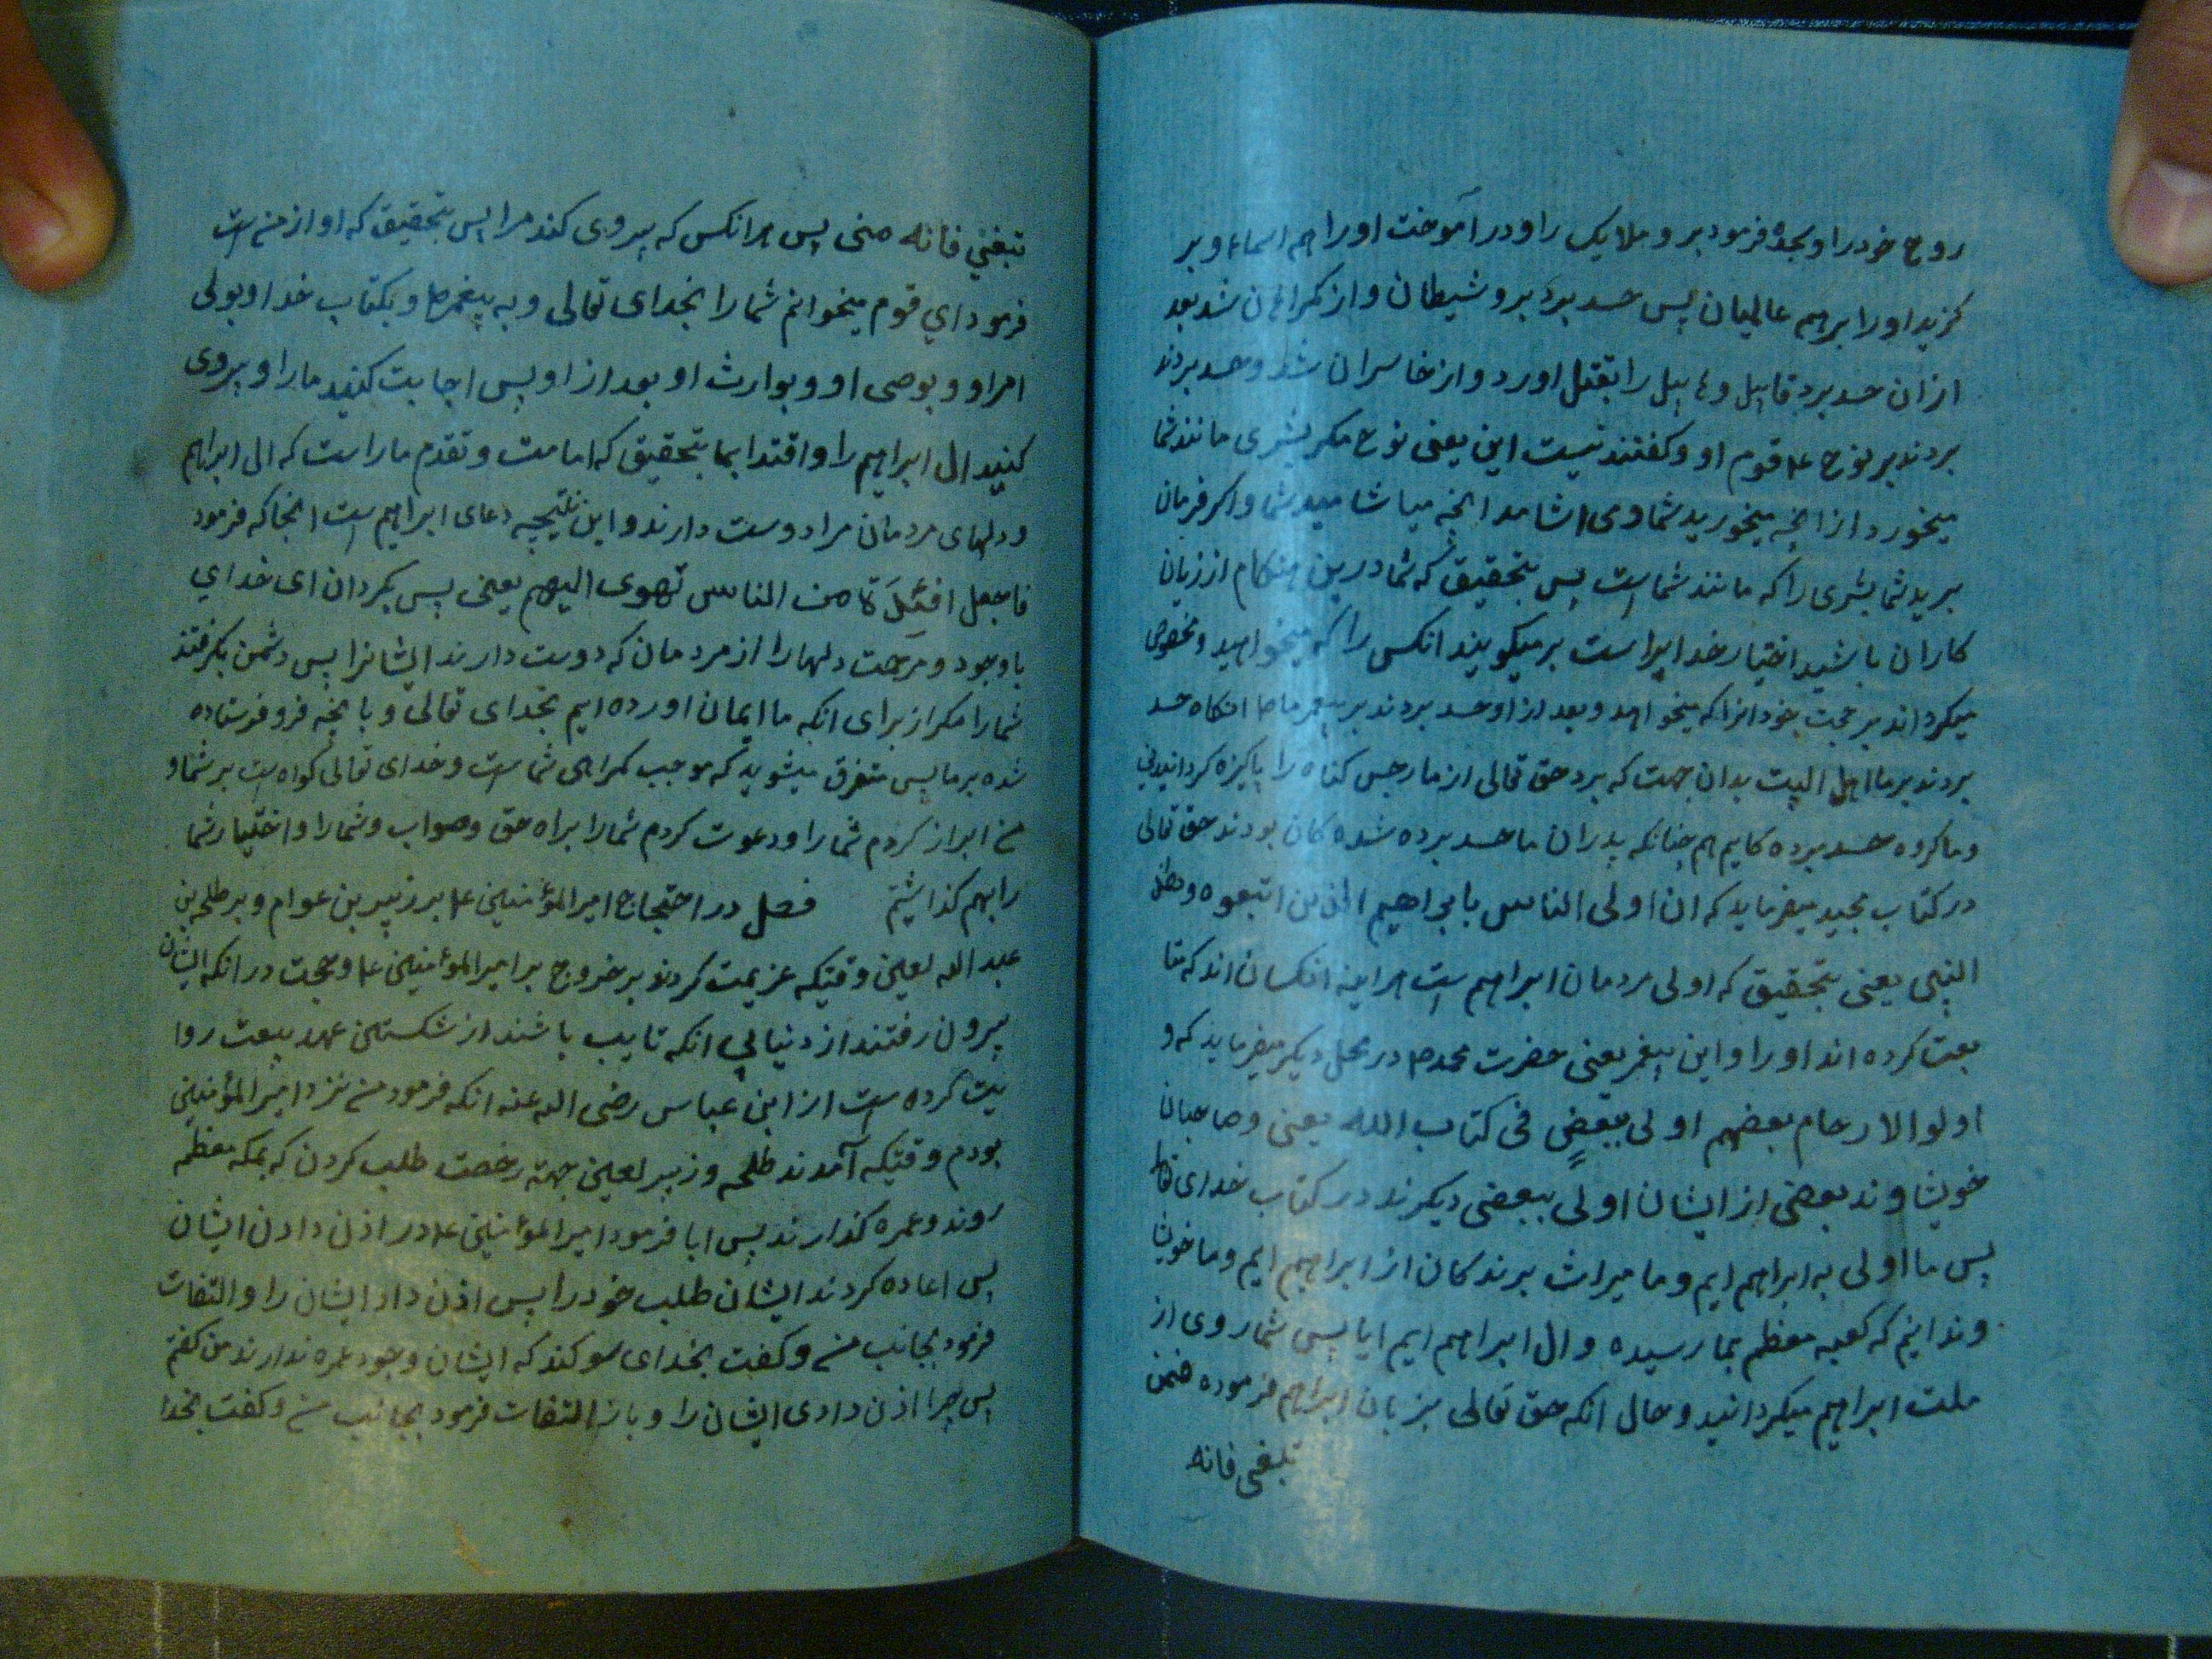 روح خود را و سجده فرمود بر و ملایک را و در آموخت او را هم اسماء و بر
کزید او را بر هم عالمیان پس حسد برد بر و شیطان و از کمراهان شد بعد
از ان حسد برد قابیل و هابیل را بقتل اورد و از خاسران شد و حسد بردند
بردند بر نوح ع قوم او و کفتند نیست این یعنی نوح مکر بشری مانند شما
میخورد از انچه میخورید شما و می اشامد انچه میاشامید شما و اکر فرمان
برید شما بشری را که مانند شماست پس بتحقیق که شما درین هنکام از زیان
کاران باشید اختیار خدایراست بر میکویند انکس را که میخواهد و مخصوص
میکرداند بر حجت خود انرا که میخواهد و بعد از او حسد بردند بر پیغمبر ما ص انکاه حسد
بردند بر ما اهل البیت بدان جهت که برد حق تعالی از ما رجس کناه را پاکیزه کردانیدنی
و ما کروه حسد برده کانیم هم چنانکه پدران ما حسد برده شده کان بودند حق تعالی
در کتاب مجید میفرماید که ان اولی الناس بابراهیم الذین اتبعوه و هذا
النبی یعنی بتحقیق که اولی مردمان ابراهیم ست هراینه انکسان اند که متا
بعت کرده اند او را و این پیغمبر یعنی حضرت محمد ص در محل دیکر میفرماید که و
اولوا الارحام بعضهم اولی ببعضٍ فی کتاب الله یعنی و صاحبان
خویشاوند بعضی از ایشان اولی ببعضی دیکرند در کتاب خدای تعا
پس ما اولی به ابراهیم ایم و ما میراث برندکان از ابراهیم ایم و ما خویشا
وندانیم که کعبه معظم بما رسیده و ال ابراهیم ایم ایا پس شما روی از
ملت ابراهیم میکردانید و حال انکه حق تعالی بر زبان ابراهیم فرموده فمن
تبغنی فانه
تبغنی فانه منی پس هر انکس که پیروی کند مرا پس بتحقیق که او از من ست
فرمود ای قوم میخوانم شما را بخدای تعالی و به پیغمبر ص و بکتاب خدا و بولی
امر او و بوصی او و بوارث او بعد از او پس اجابت کنید ما را و پیروی
کنید ال ابراهیم را و اقتدا بما بتحقیق که امامت و تقدم ما راست که ال ابراهیم
و دلهای مردمان مرا دوست دارند و این نتیجه دعای ابراهیم ست انجا که فرمود
فاجعل افئِدَةً من الناس تهوی الیهم یعنی پس بکردان ای خدای
با وجود و مرحمت دلها را از مردمان که دوست دارند ایشانرا پس دشمن بکرفتند
شما را مکر از برای انکه ما ایمان اورده ایم بخدای تعالی و با انچه فرو فرستاده
شده بر ما پس متفرق میشوید که موجب کمراهی شماست و خدای تعالی کواه ست بر شما و
من ابراز کردم شما را و دعوت کردم شما را براه حق و صواب و شما را و اختیار شما
را بهم کذاشتم فصل در احتجاج امیرالمؤمنین ع بر زبیر بن عوام و بر طلحه بن
عبد الله لعین وقتیکه عزیمت کردند بر خروج بر امیرالمؤمنین ع و حجت در انکه ایشان
بیرون رفتند از دنیا بی انکه تایب باشند از شکستن عهد بیعت روا
یت کرده ست از ابن عباس رضی الله عنه انکه فرمود من نزد امیر المؤمنین
بودم وقتیکه آمدند طلحه و زبیر لعین جهته رخصت طلب کردن که بمکه معظم
روند و عمره کذارند پس ابا فرمود امیرالمؤمنین ع در اذن دادن ایشان
پس اعاده کردند ایشان طلب خود را پس اذن داد ایشان را و التفات
فرمود بجانب من و کفت بخدای سوکند که ایشان وجود عمره ندارند من کفتم
پس چرا اذن دادی ایشان را و باز التفات فرمود بجانب من و کفت بخدا